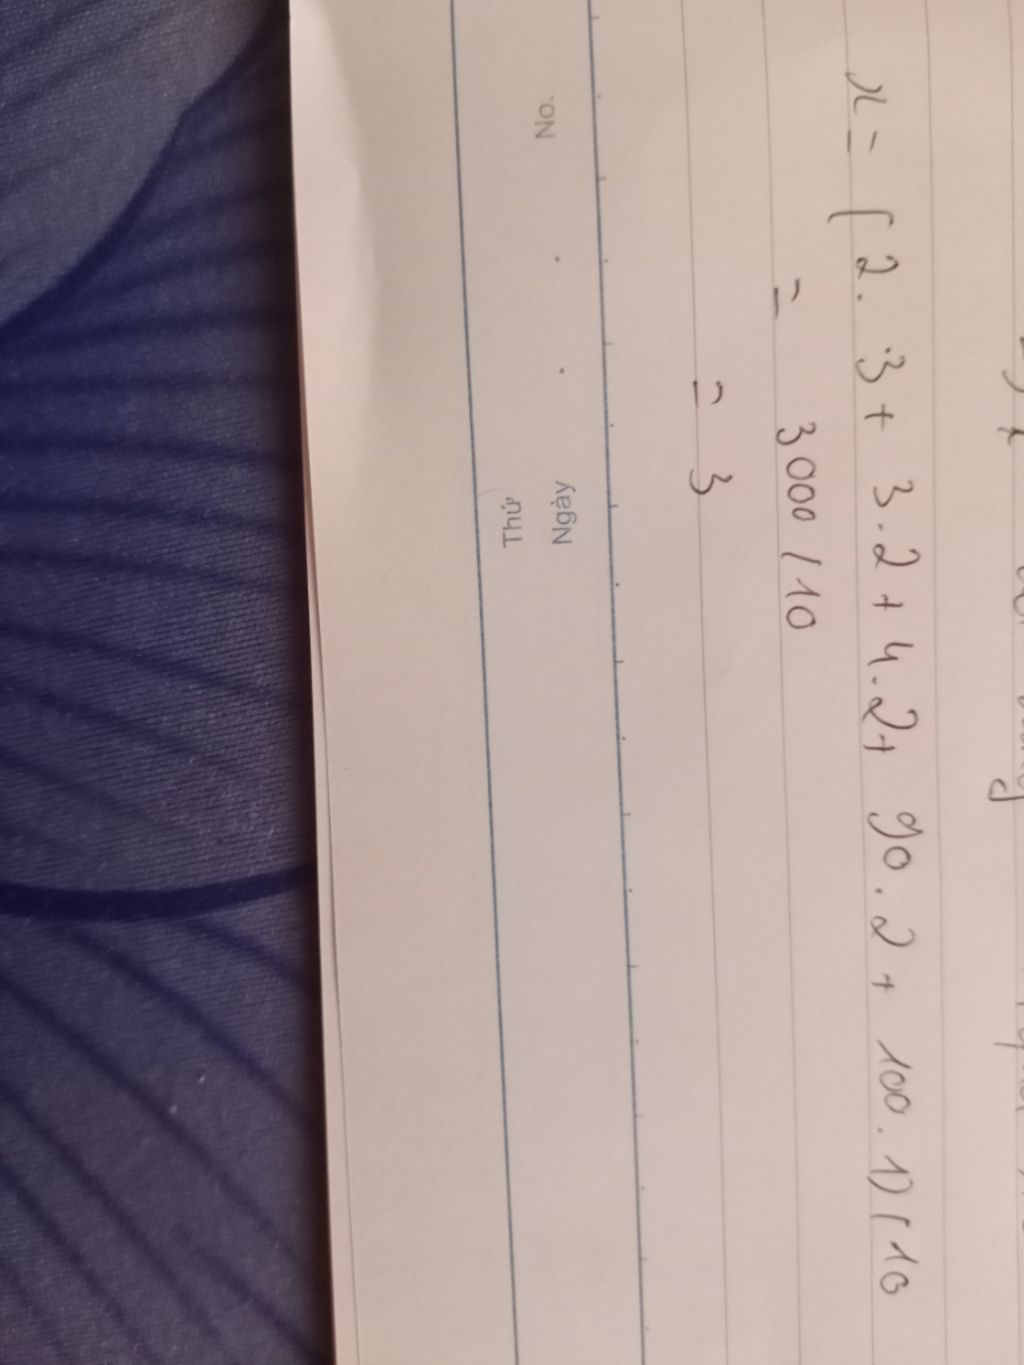 x = (2.3 + 3.2 + 4.2 + 90.2 + 100.1) / 10
= 3000 / 10
= 3
No.
Thứ
Ngày